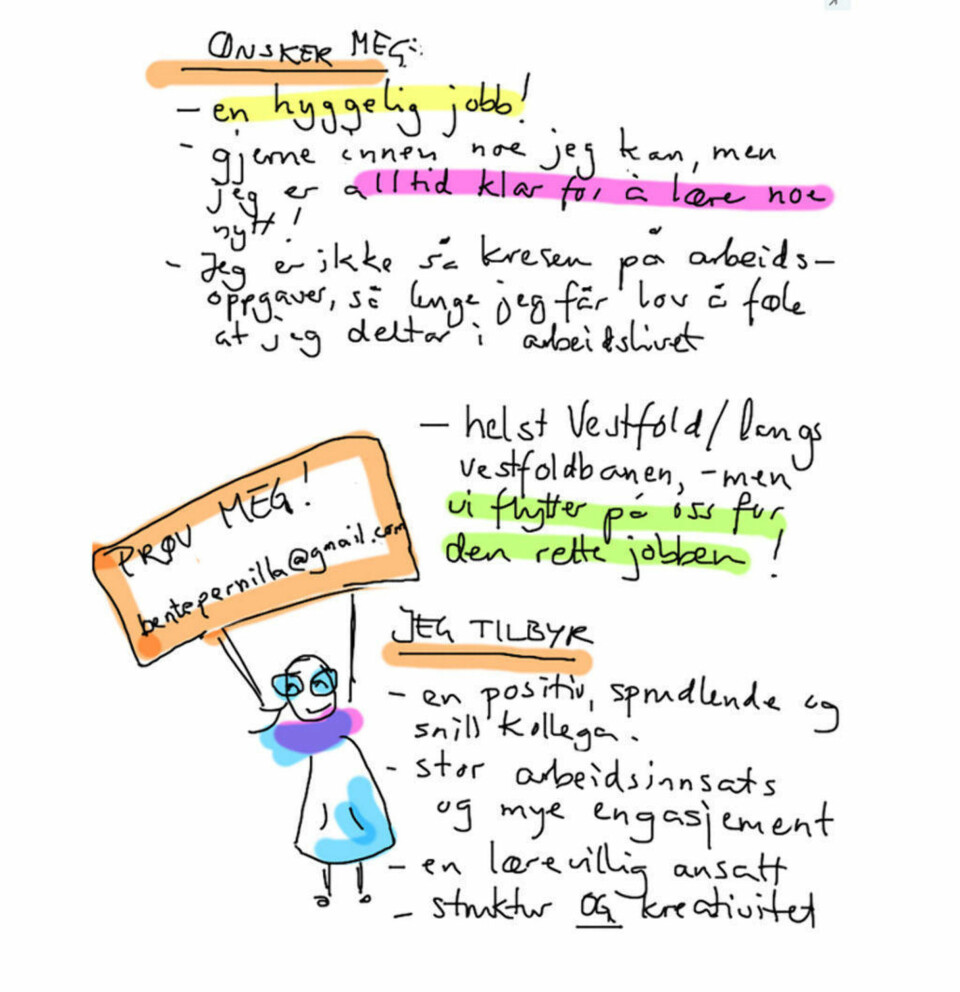 ØNSKER MEG:
- en hyggelig jobb!
- gjerne innen noe jeg kan, men
jeg er alltid klar for å lære noe
nytt!
- Jeg er ikke så kresen på arbeids-
oppgaver, så lenge jeg får lov å føle
at jeg deltar i arbeidslivet
- helst Vestfold/langs
vestfoldbanen, -men
vi flytter på oss for
den rette jobben!
PRØV MEG!
bentepernilla@gmail.com
JEG TILBYR
- en positiv, sprudlende og
snill kollega.
- stor arbeidsinnsats
og mye engasjement
- en lærevillig ansatt
- struktur OG kreativitet